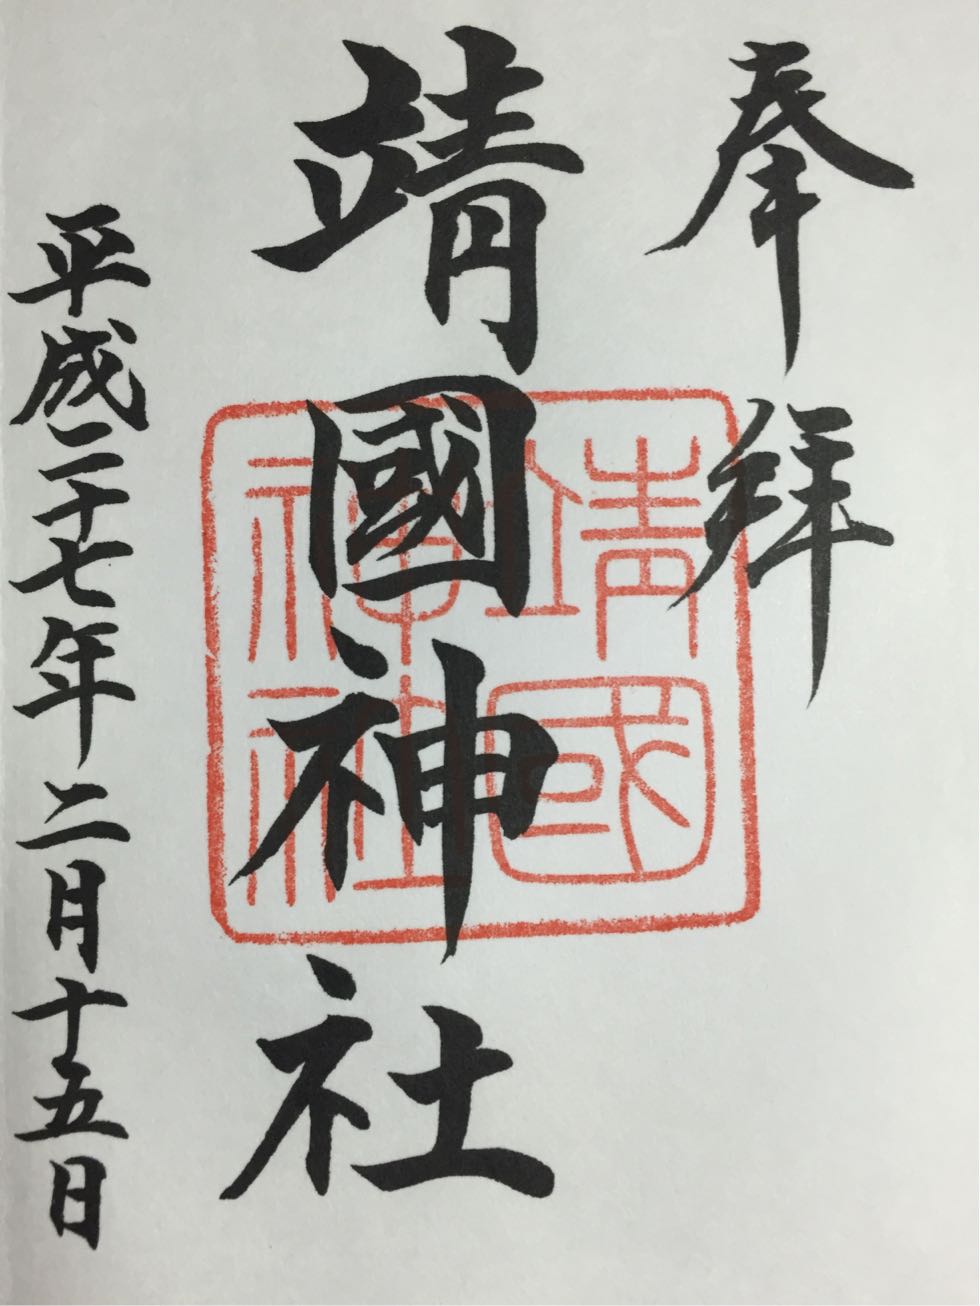 奉拜
靖國神社
靖國
神社
平成二十七年二月十五日